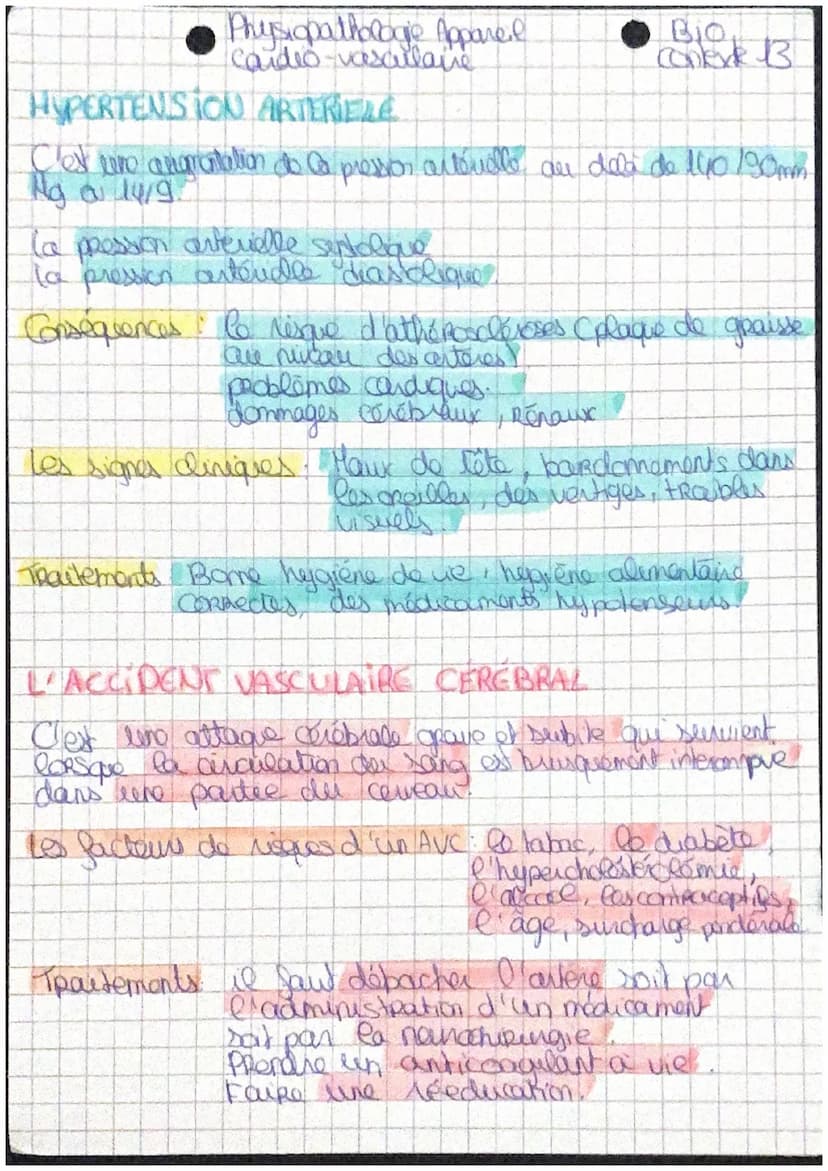 Physiopathologie Appareil
cardio-vasculaire
BIO
contexte 13
HYPERTENSION ARTERIELE
C'est une augmentation de la pression artérielle au delà de 140/90mm
Hg ou 14/9.
la pression artérielle systolique
la pression artérielle diastolique
Conséquences : le risque d'athéroscléroses (plaque de graisse
au niveau des artères)
problèmes cardiques.
dommages cérébraux, Rénaux
Les signes cliniques : Maux de tête, bourdonnements dans
les oreilles, des vertiges, troubles
visuels.
Traitements Bonne hygiène de vie, hygiène alimentaire
correctes, des médicaments hypotenseurs.
L'ACCIDENT VASCULAIRE CÉRÉBRAL
C'est une attaque cérébrale grave et subite qui survient
lorsque la circulation du sang est brusquement interompue
dans une partie du cerveau.
Les facteurs de risques d'un AVC : le tabac, le diabète,
l'hypercholéstérolémie,
l'alcool, les contraceptifs,
l'âge, surcharge pondérale
Traitements il faut débacher l'artère soit par
l'administration d'un médicament
soit par la
Prendre un anticoagulant à vie.
Faire une rééducation.